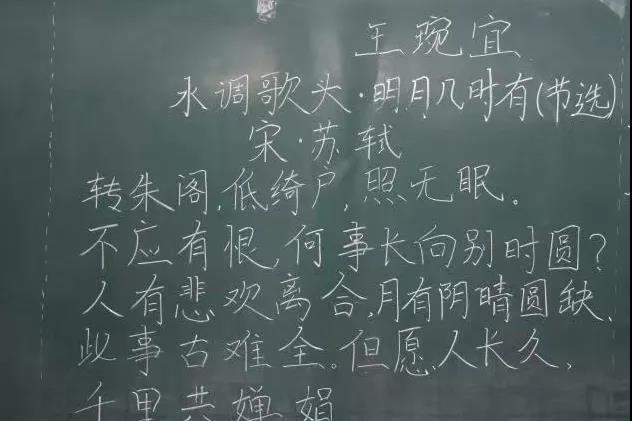 王琬宜
水调歌头·明月几时有(节选)
宋·苏轼
转朱阁,低绮户,照无眠。
不应有恨,何事长向别时圆?
人有悲欢离合,月有阴晴圆缺,
此事古难全。但愿人长久,
千里共婵娟